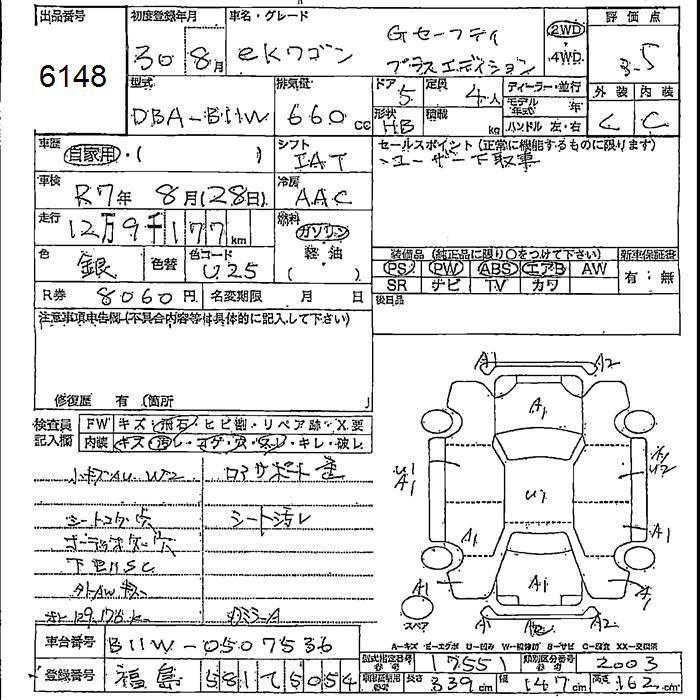 出品番号
6148
初度登録年月
30 8月
車名・グレード
eKワゴン Gセーフティ
プラスエディション
2WD
4WD
評価点
3.5
外装 内装
C C
型式
DBA-B11W
排気量
660 cc
ドア 5 定員 4人
形状 HB 積載 kg
ディーラー・並行
モデル年式 年
ハンドル 左・右
車歴
自家用・( )
シフト
IAT
セールスポイント (正常に機能するものに限ります)
ユーザー下取車
車検
R7年 8月(28日)
冷房
AAC
走行
12万9千177km
燃料
ガソリン
軽油
( )
色
銀
色替
色コード
U25
装備品 (純正品に限り○をつけて下さい)
新車保証書
PS PW ABS エアB AW
SR ナビ TV カワ
有:無
R券 8060円 名変期限 月 日
後日品
注意事項申告欄(不具合内容等は具体的に記入して下さい)
修復歴 有 (箇所
検査員記入欄
FW キズ・飛石・ヒビ割・リペア跡・X要
内装 キズ・汚レ・コゲ・穴・スレ・キレ・破レ
シート汚レ
A1 A2
A1
U1
A1
U1
A1
A1
A1
A1
A1
スペア
A-キズ E-エグボ U-凹み W-補修跡 S-サビ C-腐食 XX-交換済
車台番号 B11W-0507536
登録番号 福島 581 5054
型式指定番号 17551 類別区分番号 2003
長さ 339cm 幅 147cm 高さ 162cm